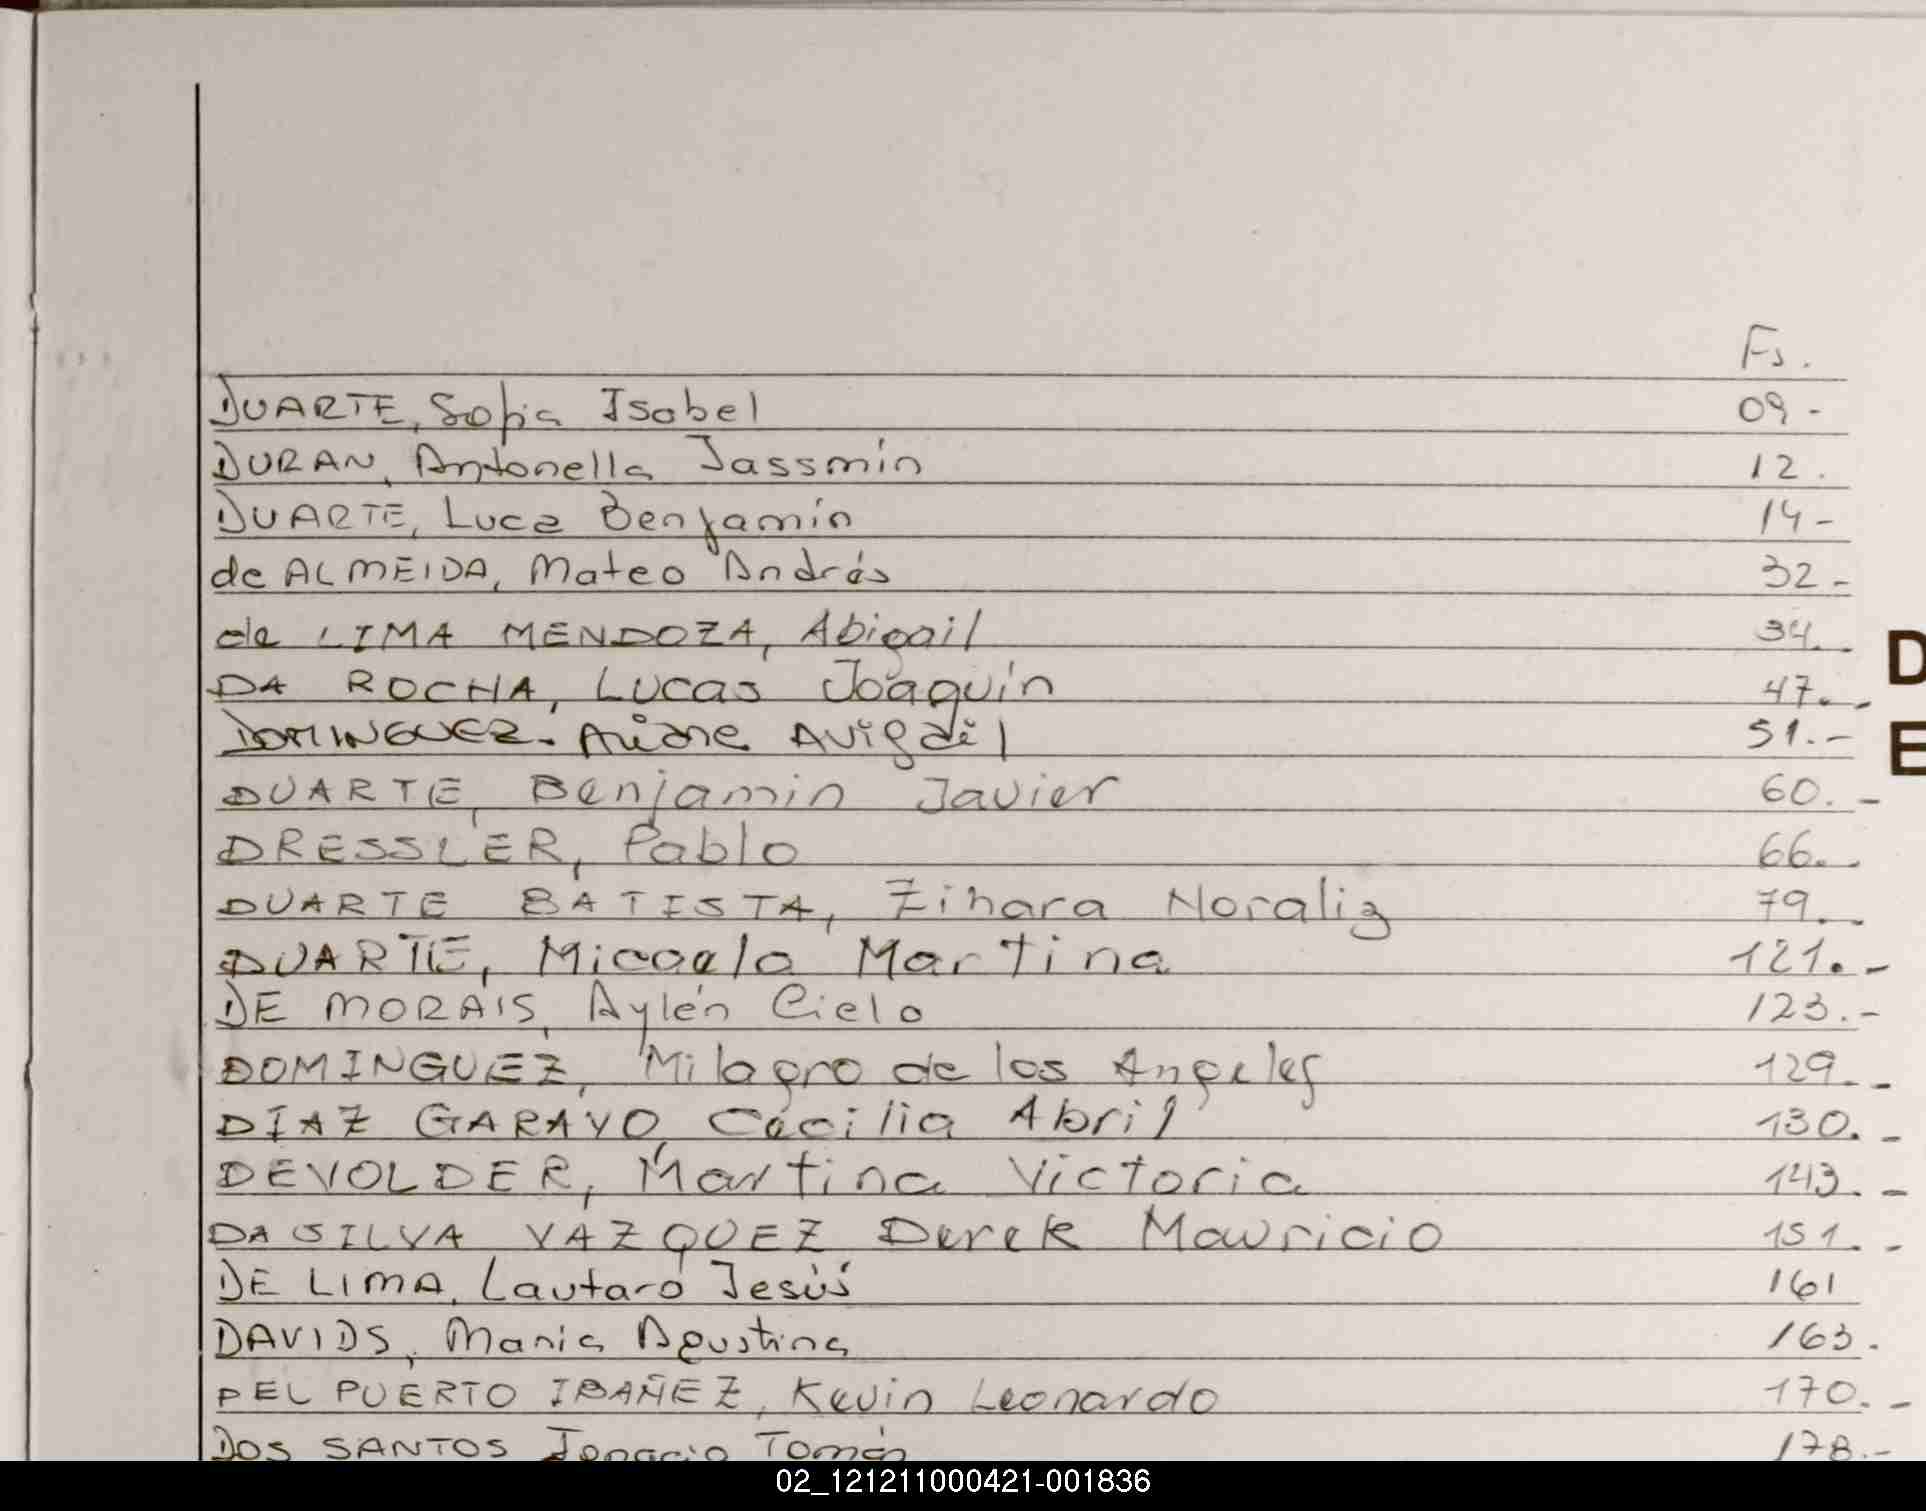 Fs.
DUARTE, Sofia Isabel 09-
DURAN, Antonella Jassmin 12.
DUARTE, Luca Benjamín 14-
de ALMEIDA, Mateo Andrés 32-
de LIMA MENDOZA, Abigail 34.-
DA ROCHA, Lucas Joaquín 47.-
D
DOMINGUEZ. Avigail 51.-
E
DUARTE, Benjamin Javier 60.-
DRESSLER, Pablo 66.-
DUARTE BATISTA, Zihara Noraliz 79.-
DUARTE, Micaela Martina 121.-
DE MORAIS, Aylén Cielo 123.-
DOMINGUEZ, Milagro de los Angeles 129.-
DIAZ GARAYO, Cecilia Abril 130.-
DEVOLDER, Martina Victoria 143.-
DA SILVA VAZQUEZ Derek Mauricio 151.-
DE LIMA, Lautaro Jesús 161
DAVIDS, Maria Agustina 163.
DEL PUERTO IBAÑEZ, Kevin Leonardo 170.-
DOS SANTOS Ignacio Tomás 178.-
02_121211000421-001836